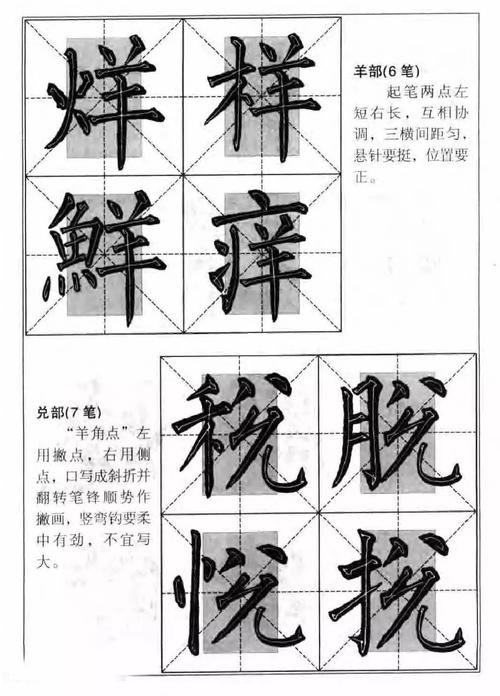 烊样
鮮痒
羊部(6笔)
起笔两点左
短右长，互相协
调，三横间距匀，
悬针要挺，位置要
正。
兑部(7笔)
“羊角点”左
用撇点，右用侧
点，口写成斜折并
翻转笔锋顺势作
撇画，竖弯钩要柔
中有劲，不宜写
大。
税脱
悦挩